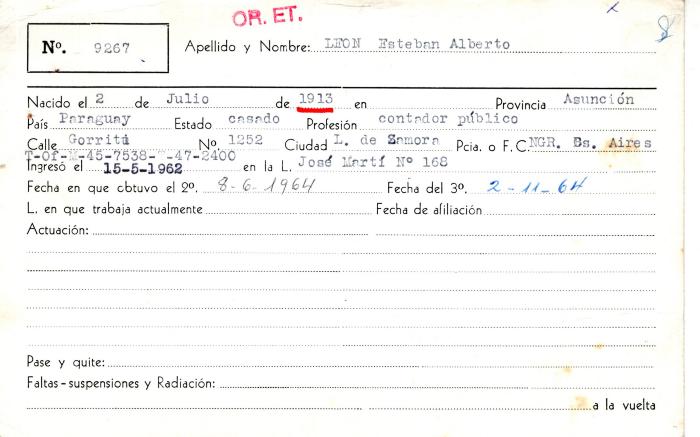 OR. ET.
Nº. 9267
Apellido y Nombre: LEON Esteban Alberto
Nacido el 2 de Julio de 1913 en Provincia Asunción
País Paraguay Estado casado Profesión contador público
Calle Gorriti Nº 1252 Ciudad L. de Zamora Pcia. o F.C. NGR. Bs. Aires
T-Of-M-45-7538-T-47-2400
Ingresó el 15-5-1962 en la L. José Martí Nº 168
Fecha en que obtuvo el 2º. 8-6-1964 Fecha del 3º. 2-11-64
L. en que trabaja actualmente Fecha de afiliación
Actuación:
Pase y quite:
Faltas-suspensiones y Radiación:
a la vuelta